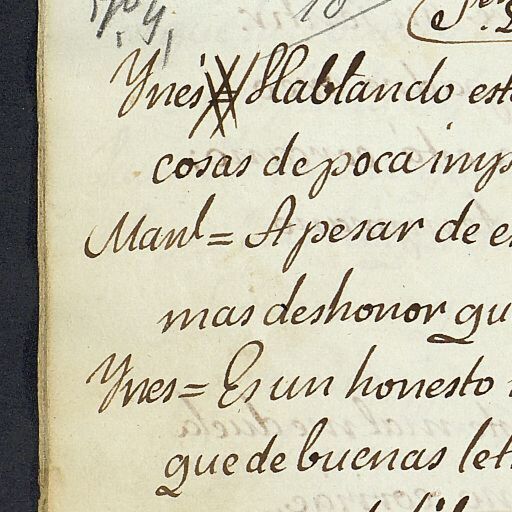 Ynes = Hablando est
cosas de poca imp
Manl = A pesar de es
mas deshonor qu
Ynes = Es un honesto
que de buenas let